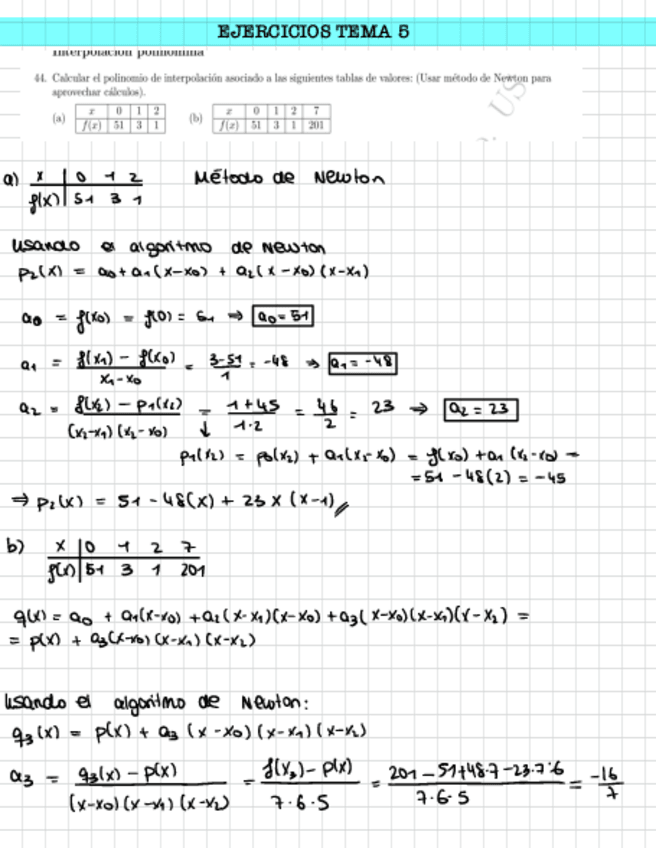 EJERCICIOS TEMA 5
Interpolación polinomial
44. Calcular el polinomio de interpolación asociado a las siguientes tablas de valores: (Usar método de Newton para
aprovechar cálculos).
(a) x 0 1 2 (b) x 0 1 2 7
f(x) 51 3 1 f(x) 51 3 1 201
a) x | 0 1 2 Método de Newton
f(x) | 51 3 1
usando el algoritmo de Newton
p₂(x) = a₀ + a₁(x-x₀) + a₂(x-x₀)(x-x₁)
a₀ = f(x₀) = f(0) = 51 ⇒ a₀ = 51
a₁ = (f(x₁) - f(x₀))/(x₁-x₀) = (3-51)/1 = -48 ⇒ a₁ = -48
a₂ = (f(x₂) - p₁(x₂))/((x₂-x₁)(x₂-x₀)) = (1+45)/(1·2) = 46/2 = 23 ⇒ a₂ = 23
↓
p₁(x₂) = p₀(x₂) + a₁(x₂-x₀) = f(x₀) + a₁(x₂-x₀) =
= 51 - 48(2) = -45
⇒ p₂(x) = 51 - 48(x) + 23x(x-1)
b) x | 0 1 2 7
f(x) | 51 3 1 201
q(x) = a₀ + a₁(x-x₀) + a₂(x-x₁)(x-x₀) + a₃(x-x₀)(x-x₁)(x-x₂) =
= p(x) + a₃(x-x₀)(x-x₁)(x-x₂)
usando el algoritmo de Newton:
q₃(x) = p(x) + a₃(x-x₀)(x-x₁)(x-x₂)
a₃ = (q₃(x) - p(x))/((x-x₀)(x-x₁)(x-x₂)) = (f(x₃) - p(x))/(7·6·5) = (201-51+48·7-23·7·6)/(7·6·5) = -16/7